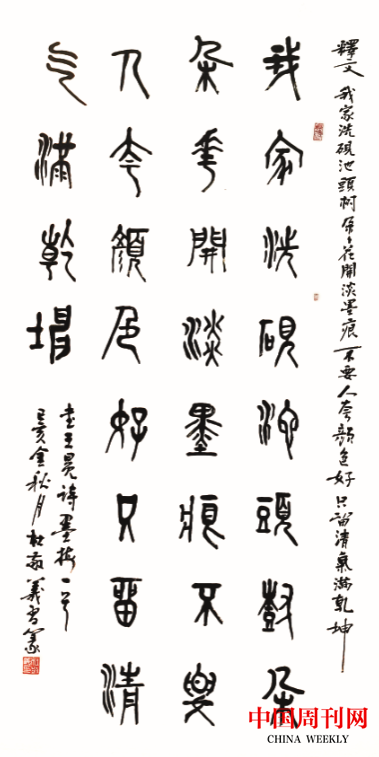 釋文 我家洗硯池頭樹 朵々花開淡墨痕 不要人夸顏色好 只留清氣滿乾坤
我家洗硯池頭樹朵
朵華開淡墨痕不要
人夸顏色好只留清
气滿乾坤
書王冕詩墨梅一首
己亥金秋月杜敬義書篆
中国周刊网
CHINA WEEKLY